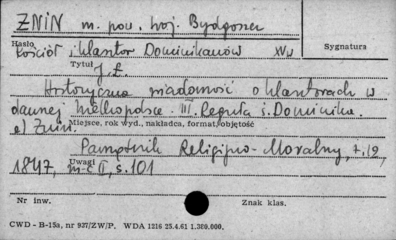 ŻNIN m. pow. woj. Bydgoszcz
Hasło
Kościół i klasztor Dominikanów XV w
Sygnatura
Tytuł
J. Ł.
Historyczna wiadomość o klasztorach w
dawnej Wielkopolsce. III. Reguła ś. Dominika.
e) Żnin.
Miejsce, rok wyd., nakładca, format, objętość
Pamiętnik Religijno-Moralny, t. 12,
1847,
Uwagi
s. 101
Nr inw.
Znak klas.
CWD - B-15a, nr 927/ZW/P. WDA 1216 25.4.61 1.300.000.